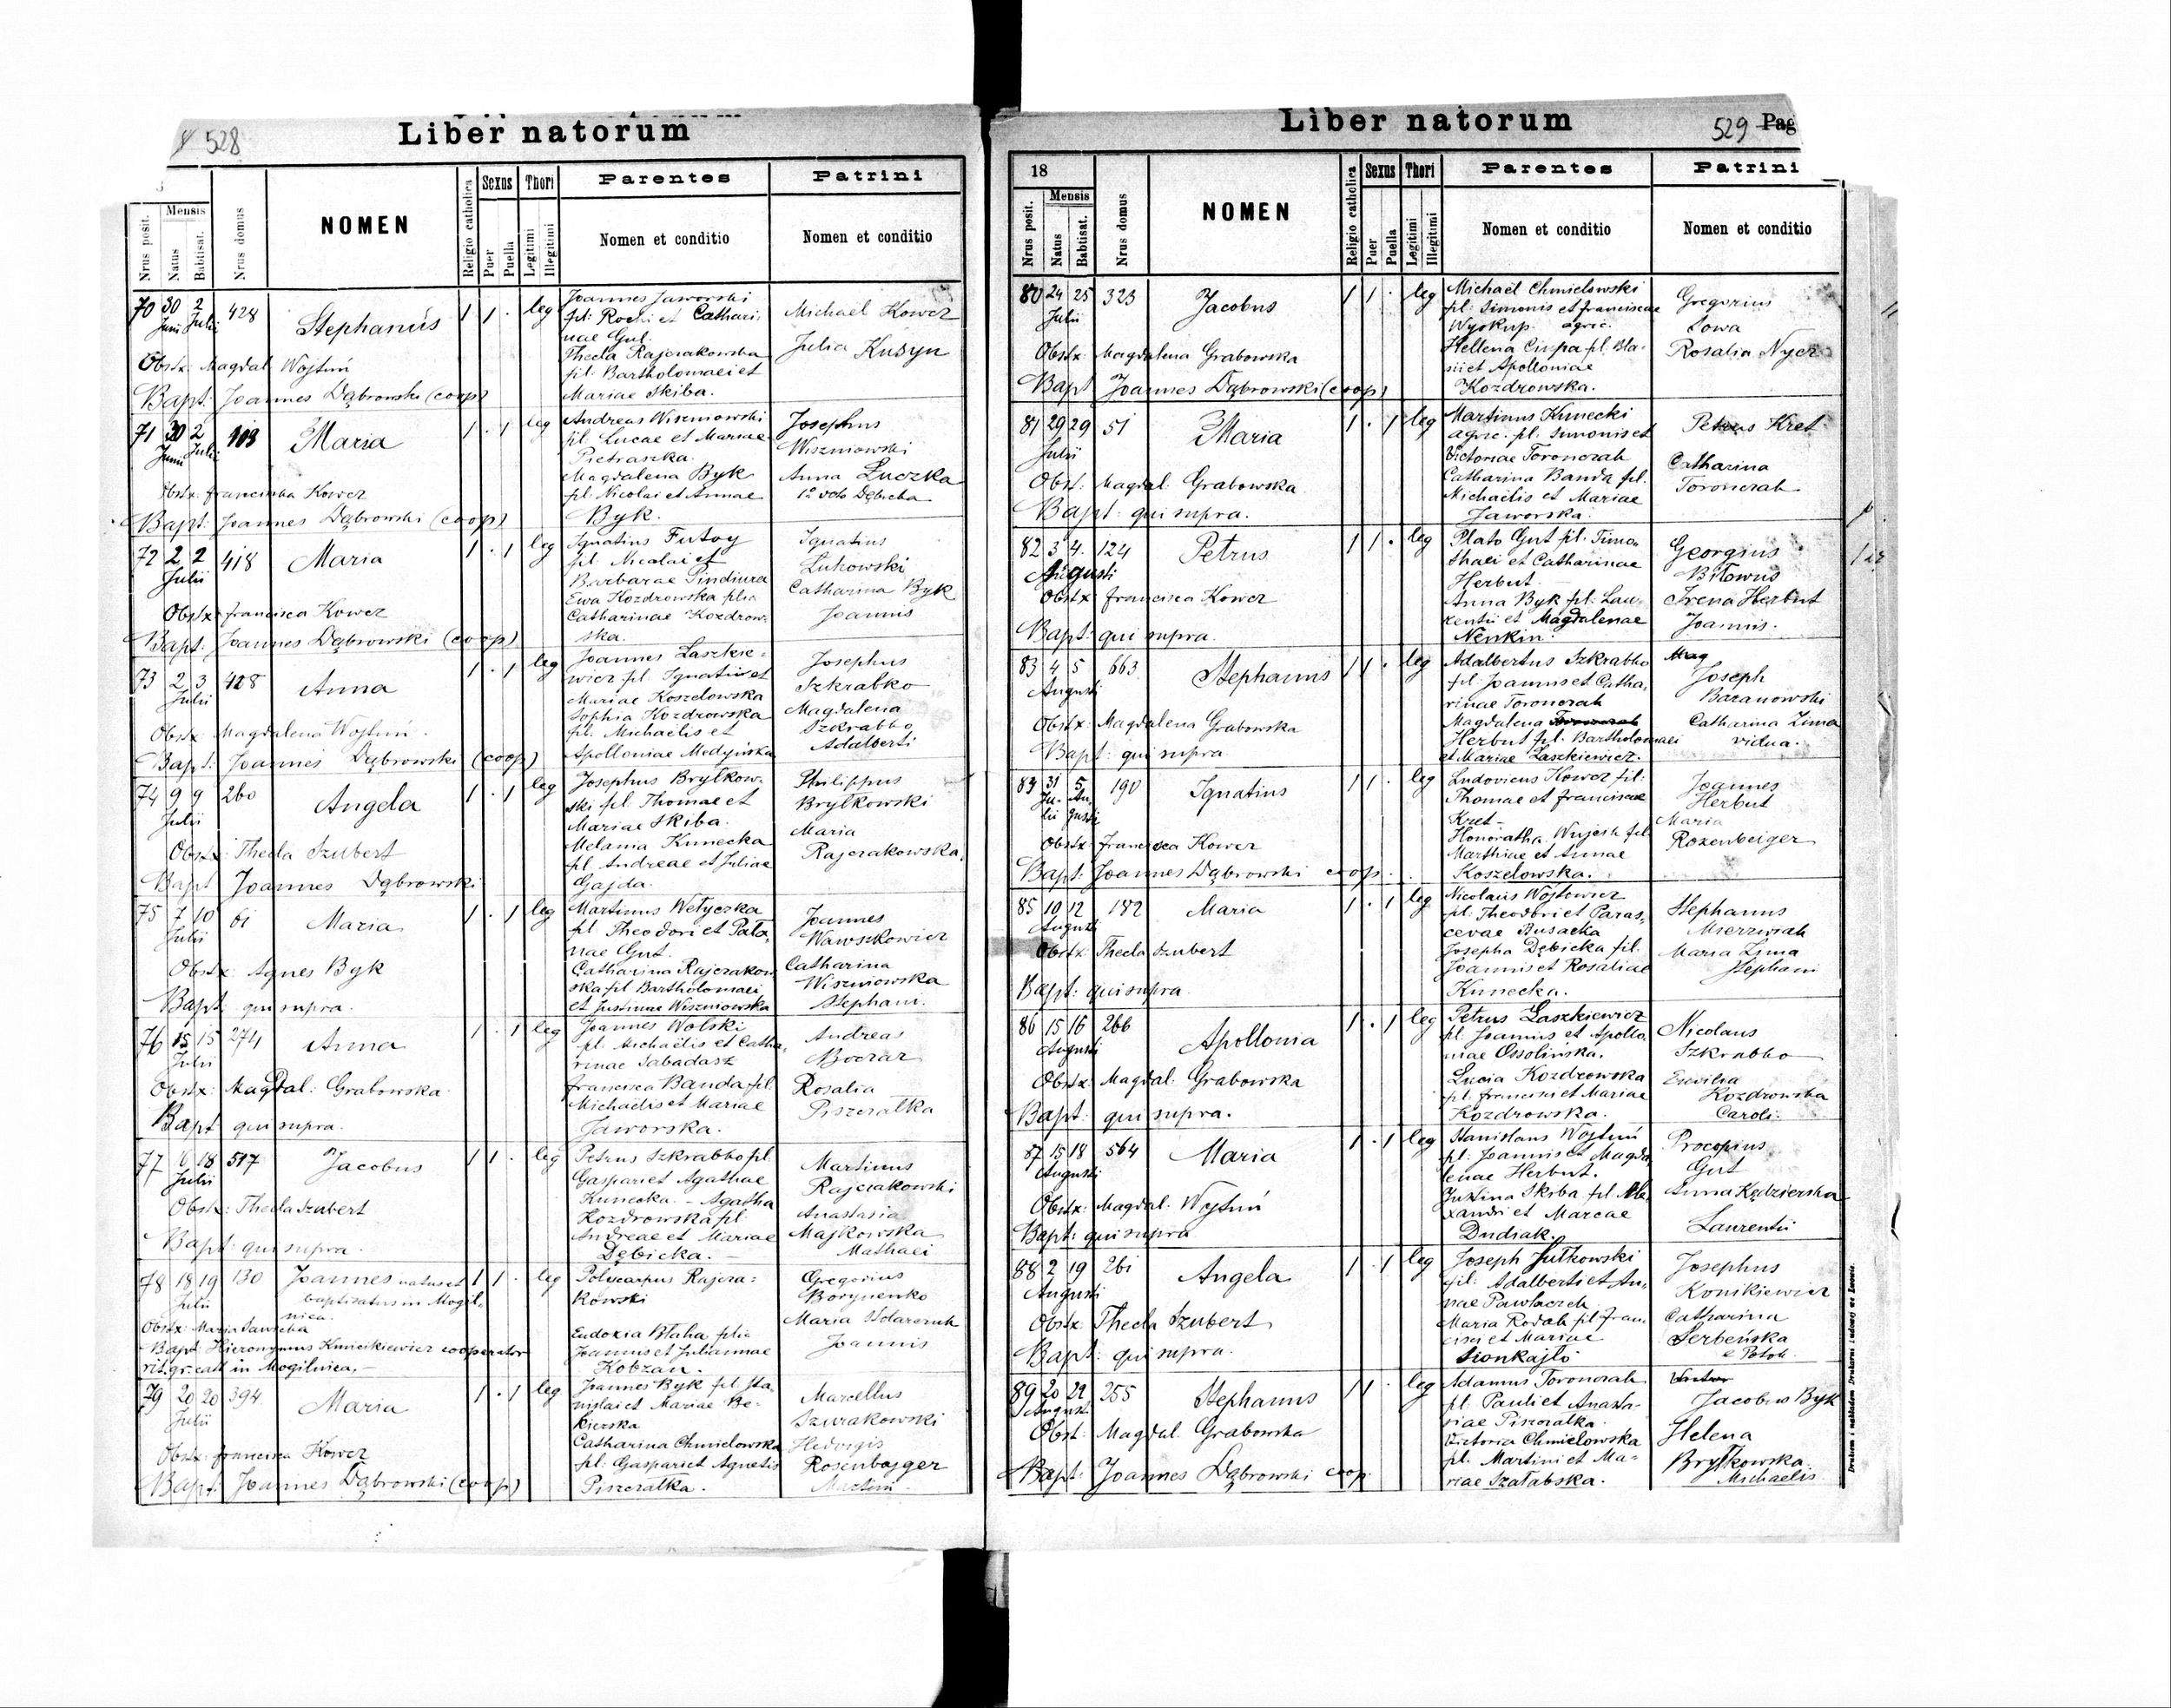 528
Liber natorum
Nrus posit.
Mensis
Natus
Babtisat.
Nrus domus
NOMEN
Religio catholica
Sexus
Puer
Puella
Thori
Legitimi
Illegitimi
Parentes
Nomen et conditio
Patrini
Nomen et conditio
70 30 Junii 2 Julii 428 Stephanus 1 1 · leg
Joannes Jaworski
fil. Rochi et Cathari-
nae Gut.
Thecla Rajczakowska
fil. Bartholomaei et
Mariae Skiba.
Michael Kowcz
Julia Kusyn
Obstx: Magdal Wojtuń
Bapt: Joannes Dąbrowski (coop)
71 30 Junii 2 Julii Maria 1 · 1 leg
Andreas Wiszniowski
fil. Lucae et Mariae
Pietraszka.
Magdalena Byk
fil. Nicolai et Annae
Byk.
Josephus
Wiszniowski
Anna Łuczka
1º voto Dębicka
Obstx: Franciska Kowcz
Bapt: Joannes Dąbrowski (coop)
72 2 2 Julii 418 Maria 1 · 1 leg
Ignatius Futoy
fil. Nicolai et
Barbarae Pindiura
Ewa Kozdrowska filia
Catharinae Kozdrow-
ska.
Ignatius
Łukowski
Catharina Byk
Joannis
Obstx: Francisca Kowcz
Bapt: Joannes Dąbrowski (coop)
73 2 3 Julii 428 Anna 1 · 1 leg
Joannes Laszkie-
wicz fil. Ignatii et
Mariae Koszelowska
Sophia Kozdrowska
fil. Michaelis et
Apolloniae Medyńska
Josephus
Szkrabko
Magdalena
Szkrabko
Adalberti
Obstx: Magdalena Wojtuń.
Bapt: Joannes Dąbrowski (coop)
74 9 9 Julii 260 Angela 1 · 1 leg
Josephus Bryłkow-
ski fil. Thomae et
Mariae Skiba.
Melania Kunecka
fil. Andreae et Juliae
Gajda.
Philippus
Bryłkowski
Maria
Rajczakowska.
Obstx: Thecla Szubert
Bapt Joannes Dąbrowski
75 7 10 Julii 61 Maria 1 · 1 leg
Martinus Wetyczka
fil Theodori et Pała-
nae Gut.
Catharina Rajczakow-
ska fil Bartholomaei
et Justinae Wiszniowska
Joannes
Wawszkowicz
Catharina
Wiszniowska
Stephani.
Obstx: Agnes Byk
Bapt: qui supra.
76 15 15 Julii 274 Anna 1 · 1 leg
Joannes Wolski
fil. Michaëlis et Catha-
rinae Sabadasz
Francisca Banda fil
Michaëlis et Mariae
Jaworska.
Andreas
Boczar
Rosalia
Piszczatka
Obstx: Magdal: Grabowska.
Bapt qui supra.
77 6 18 Julii 517 Jacobus 1 1 · leg
Petrus Szkrabko fil
Gaspari et Agathae
Kunecka. - Agatha
Kozdrowska fil.
Andreae et Mariae
Dębicka.
Martinus
Rajczakowski
Anastasia
Majkowska
Mathaei
Obstx: Thecla Szubert
Bapt: qui supra.
78 18 19 Julii 130 Joannes natus et 1 1 · leg
baptisatus in Mogil-
nica.
Polycarpus Rajcza-
kowski
Eudoxia Błaha filia
Joannis et Julianae
Kobzan.
Gregorius
Borynenko
Maria Stolarczuk
Joannis
Obstx: Maria Sawicka
Bapt: Hieronymus Kuncikiewicz cooperator
rit. gr. cath in Mogilnica.
79 20 20 Julii 394 Maria 1 · 1 leg
Joannes Byk fil. Sta-
nislai et Mariae Be-
kierska
Catharina Chmielowska
fil. Gaspari et Agnetis
Piszczatka.
Marcellus
Szwrakowski
Hedvigis
Rosenbagger
Martini.
Obstx: Francisca Kowcz
Bapt: Joannes Dąbrowski (coop)
529 Pag
Liber natorum
18
Nrus posit.
Mensis
Natus
Babtisat.
Nrus domus
NOMEN
Religio catholica
Sexus
Puer
Puella
Thori
Legitimi
Illegitimi
Parentes
Nomen et conditio
Patrini
Nomen et conditio
80 24 25 Julii 323 Jacobus 1 1 · leg
Michael Chmielowski
fil. Simonis et Franciscae
Wyskup. agric.
Hellena Ciupa fil. Bla-
sii et Apolloniae
Kozdrowska.
Gregorius
Sowa
Rosalia Nycz
Obstx Magdalena Grabowska
Bapt Joannes Dąbrowski (coop)
81 29 29 Julii 51 Maria 1 · 1 leg
Martinus Kunecki
agric. fil. Simonis et
Victoriae Toronczak
Catharina Banda fil.
Michaëlis et Mariae
Jaworska.
Petrus Kret
Catharina
Toronczak
Obst: Magdal: Grabowska
Bapt: qui supra.
82 3 4. Augusti 124 Petrus 1 1 · leg
Plato Gut fil. Timo-
thaei et Catharinae
Herbut.
Anna Byk fil. Lau-
rentii et Magdalenae
Nenkin.
Georgius
Biłowus
Irena Herbut
Joannis.
Obstx Francisca Kowcz
Bapt: qui supra.
83 4 5 Augusti 663 Stephanus 1 1 · leg
Adalbertus Szkrabko
fil. Joannis et Catha-
rinae Toronczak
Magdalena Toronczak
Herbut fil. Bartholomaei
et Mariae Laszkiewicz.
Mag
Joseph
Baranowski
Catharina Zima
vidua.
Obstx: Magdalena Grabowska
Bapt: qui supra
84 31 Julii 5 Augusti 190 Ignatius 1 1 · leg
Ludovicus Kowcz fil.
Thomae et Franciscae
Kret -
Honoratha Wujcik fil
Matthiae et Annae
Koszelowska.
Joannes
Herbut
Maria
Rozenberger
Obstx: Francisca Kowcz
Bapt: Joannes Dąbrowski coop.
85 10 12 Augusti 182 Maria 1 · 1 leg
Nicolaus Wojtowicz
fil. Theodori et Paras-
cevae Busacka
Josepha Dębicka fil.
Joannis et Rosaliae
Kunecka.
Stephanus
Mierzwiak
Maria Zima
Stephani
Obstx: Thecla Szubert
Bapt: qui supra.
86 15 16 Augusti 266 Apollonia 1 · 1 leg
Petrus Laszkiewicz
fil. Joannis et Apollo-
niae Ossolińska.
Lucia Kozdrowska
fil. Francisci et Mariae
Kozdrowska.
Nicolaus
Szkrabko
Emilia
Kozdrowska
Caroli.
Obstx: Magdal: Grabowska
Bapt: qui supra.
87 15 18 Augusti 564 Maria 1 · 1 leg
Stanislaus Wojtuń
fil. Joannis et Magda-
lenae Herbut.
Justina Skiba fil. Ale-
xandri et Marcae
Dudiak.
Procopius
Gut
Anna Kędzierska
Laurentii
Obstx: Magdal: Wojtuń
Bapt: qui supra
88 2 19 Augusti 261 Angela 1 · 1 leg
Joseph Jutkowski
fil. Adalberti et An-
nae Pawlaczek
Maria Rodak fil Fran-
cisci et Mariae
Sionkajło
Josephus
Konikiewicz
Catharina
Serbeńska
e Potok.
Obstx: Thecla Szubert
Bapt: qui supra.
89 20 22 Augusti 255 Stephanus 1 1 · leg
Adamus Toronczak
fil. Pauli et Anasta-
siae Piszczatka.
Victoria Chmielowska
fil. Martini et Ma-
riae Szałabska.
Jacobus Byk
Helena
Bryłkowska
Michaelis.
Obst: Magdal. Grabowska
Bapt: Joannes Dąbrowski coop
Drukiem i nakładem Drukarni Ludowej we Lwowie.